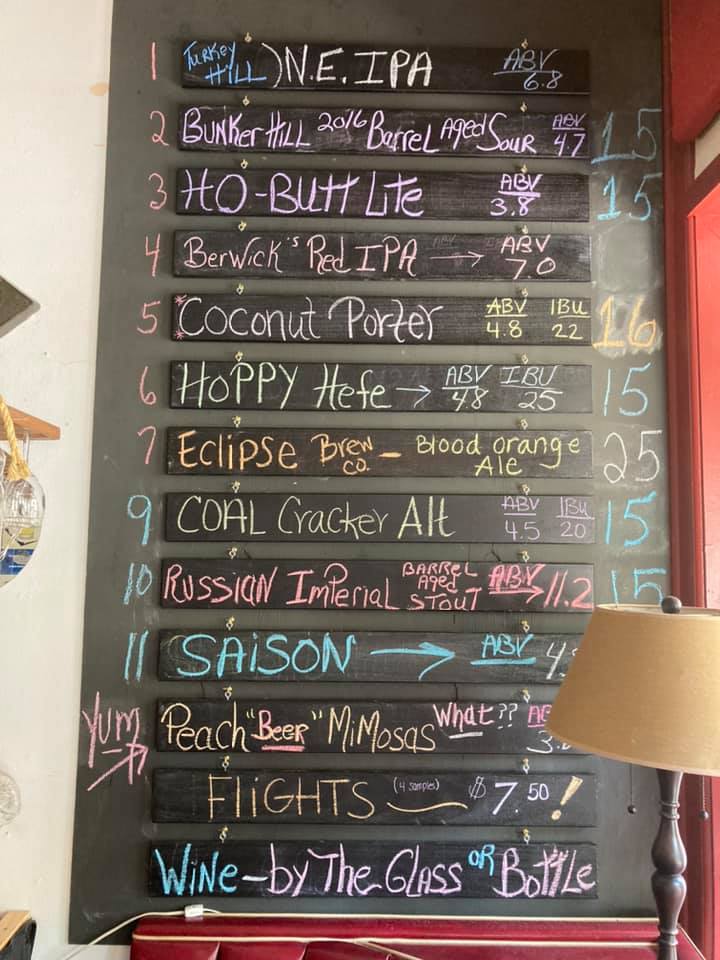 1 Turkey Hill) N.E. IPA ABV 6.8
2 Bunker Hill 2016 Barrel Aged Sour ABV 4.7 15
3 HO-BUTT Lite ABV 3.8 15
4 Berwick's Red IPA → ABV 7.0
5 *Coconut Porter ABV 4.8 IBU 22 16
6 HOPPY Hefe → ABV 4.8 IBU 25 15
7 Eclipse Brew Co. – Blood orange Ale 25
9 COAL Cracker Alt ABV 4.5 IBU 20 15
10 RUSSIAN Imperial BARREL Aged STOUT ABV → 11.2 15
11 SAISON → ABV 4.
Yum Peach "Beer" MiMosas What?? AB 3.
FLiGHTS (4 samples) $7.50!
WiNe – by The Glass OR Bottle